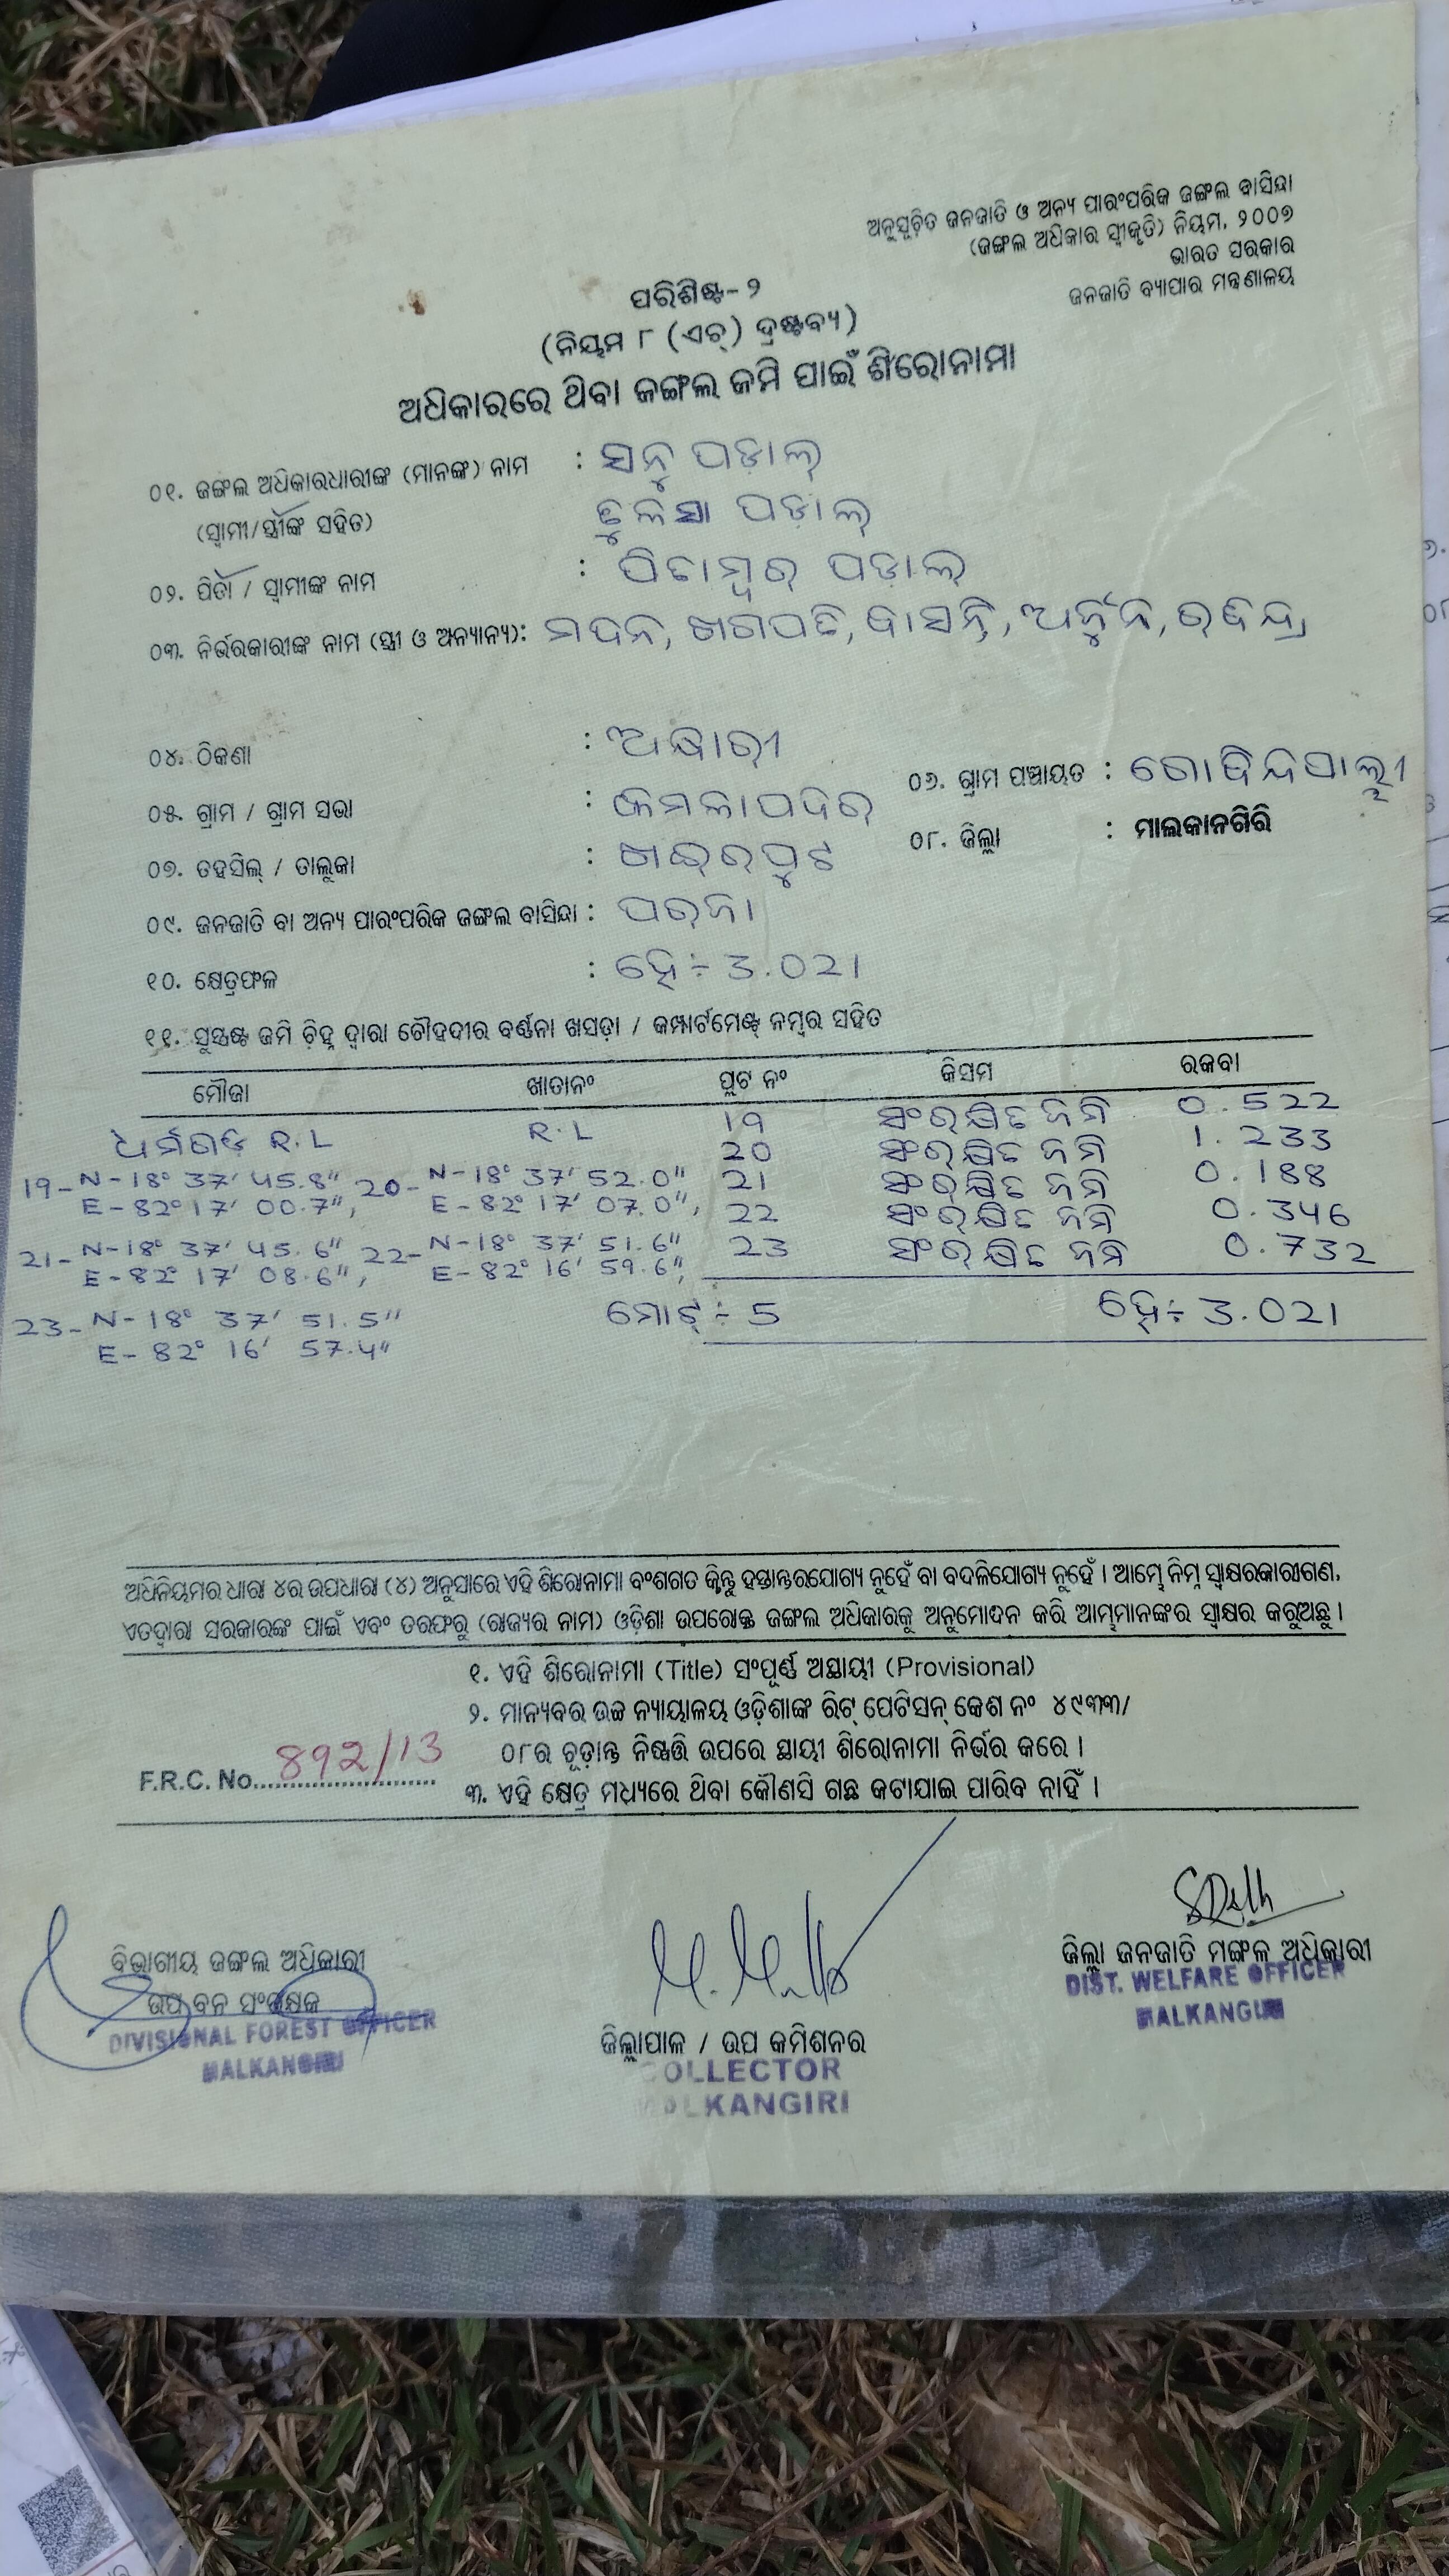 ଅନୁସୂଚିତ ଜନଜାତି ଓ ଅନ୍ୟ ପାରଂପରିକ ଜଙ୍ଗଲ ବାସିନ୍ଦା
(ଜଙ୍ଗଲ ଅଧିକାର ସ୍ୱୀକୃତି) ନିୟମ, ୨୦୦୭
ଭାରତ ସରକାର
ଜନଜାତି ବ୍ୟାପାର ମନ୍ତ୍ରଣାଳୟ
ପରିଶିଷ୍ଟ-୨
(ନିୟମ ୮ (ଏଚ୍) ଦ୍ରଷ୍ଟବ୍ୟ)
ଅଧିକାରରେ ଥିବା ଜଙ୍ଗଲ ଜମି ପାଇଁ ଶିରୋନାମା
୦୧. ଜଙ୍ଗଲ ଅଧିକାରଧାରୀଙ୍କ (ମାନଙ୍କ) ନାମ : ସନୁ ପଡ଼ାଲ୍
(ସ୍ୱାମୀ/ସ୍ତ୍ରୀଙ୍କ ସହିତ) ତୁଳସା ପଡ଼ାଲ୍
୦୨. ପିତା / ସ୍ୱାମୀଙ୍କ ନାମ : ପିତାମ୍ବର୍ ପଡ଼ାଲ୍
୦୩. ନିର୍ଭରକାରୀଙ୍କ ନାମ (ସ୍ତ୍ରୀ ଓ ଅନ୍ୟାନ୍ୟ): ମଦନ, ଖଗପତି, ବାସନ୍ତି, ଅର୍ଜୁନ, ରବିନ୍ଦ୍ର
୦୪. ଠିକଣା :
୦୫. ଗ୍ରାମ / ଗ୍ରାମ ସଭା : କମଳାପଦର୍
୦୬. ଗ୍ରାମ ପଞ୍ଚାୟତ : ଗୋବିନ୍ଦପାଲ୍ଲୀ
୦୭. ତହସିଲ୍ / ତାଲୁକା : ଖଇରପୁଟ
୦୮. ଜିଲ୍ଲା : ମାଲକାନଗିରି
୦୯. ଜନଜାତି ବା ଅନ୍ୟ ପାରଂପରିକ ଜଙ୍ଗଲ ବାସିନ୍ଦା : ପରଜା
୧୦. କ୍ଷେତ୍ରଫଳ : ହେ÷ 3.021
୧୧. ସୁସ୍ପଷ୍ଟ ଜମି ଚିହ୍ନ ଦ୍ୱାରା ଚୌହଦୀର ବର୍ଣ୍ଣନା ଖସଡ଼ା / କମ୍ପାର୍ଟମେଣ୍ଟ୍ ନମ୍ବର ସହିତ
ମୌଜା ଖାତାନଂ ପ୍ଲଟ ନଂ କିସମ ରକବା
R.L R.L 19 ସଂରକ୍ଷିତ ଜମି 0.522
20 ସଂରକ୍ଷିତ ଜମି 1.233
19- N-18° 37' 45.8" 20- N-18° 37' 52.0" 21 ସଂରକ୍ଷିତ ଜମି 0.188
E-82° 17' 00.7", E-82° 17' 07.0", 22 ସଂରକ୍ଷିତ ଜମି 0.346
21- N-18° 37' 45.6" 22- N-18° 37' 51.6" 23 ସଂରକ୍ଷିତ ଜମି 0.732
E-82° 17' 08.6", E-82° 16' 59.6",
23- N-18° 37' 51.5" ମୋଟ୍ ÷ 5 ହେ÷ 3.021
E-82° 16' 57.4"
ଅଧିନିୟମର ଧାରା ୪ର ଉପଧାରା (୪) ଅନୁସାରେ ଏହି ଶିରୋନାମା ବଂଶଗତ କିନ୍ତୁ ହସ୍ତାନ୍ତରଯୋଗ୍ୟ ନୁହେଁ ବା ବଦଳିଯୋଗ୍ୟ ନୁହେଁ । ଆମ୍ଭେ ନିମ୍ନ ସ୍ୱାକ୍ଷରକାରୀଗଣ,
ଏତଦ୍ୱାରା ସରକାରଙ୍କ ପାଇଁ ଏବଂ ତରଫରୁ (ରାଜ୍ୟର ନାମ) ଓଡ଼ିଶା ଉପରୋକ୍ତ ଜଙ୍ଗଲ ଅଧିକାରକୁ ଅନୁମୋଦନ କରି ଆମ୍ଭମାନଙ୍କର ସ୍ୱାକ୍ଷର କରୁଅଛୁ ।
୧. ଏହି ଶିରୋନାମା (Title) ସଂପୂର୍ଣ୍ଣ ଅସ୍ଥାୟୀ (Provisional)
୨. ମାନ୍ୟବର ଉଚ୍ଚ ନ୍ୟାୟାଳୟ ଓଡ଼ିଶାଙ୍କ ରିଟ୍ ପେଟିସନ୍ କେଶ ନଂ ୪୯୩୩/
୦୮ର ଚୂଡ଼ାନ୍ତ ନିଷ୍ପତ୍ତି ଉପରେ ସ୍ଥାୟୀ ଶିରୋନାମା ନିର୍ଭର କରେ ।
F.R.C. No. 892/13
୩. ଏହି କ୍ଷେତ୍ର ମଧ୍ୟରେ ଥିବା କୌଣସି ଗଛ କଟାଯାଇ ପାରିବ ନାହିଁ ।
ବିଭାଗୀୟ ଜଙ୍ଗଲ ଅଧିକାରୀ
ଉପ ବନ ସଂରକ୍ଷକ
DIVISIONAL FOREST OFFICER
MALKANGIRI
ଜିଲ୍ଲାପାଳ / ଉପ କମିଶନର
COLLECTOR
MALKANGIRI
ଜିଲ୍ଲା ଜନଜାତି ମଙ୍ଗଳ ଅଧିକାରୀ
DIST. WELFARE OFFICER
MALKANGIRI